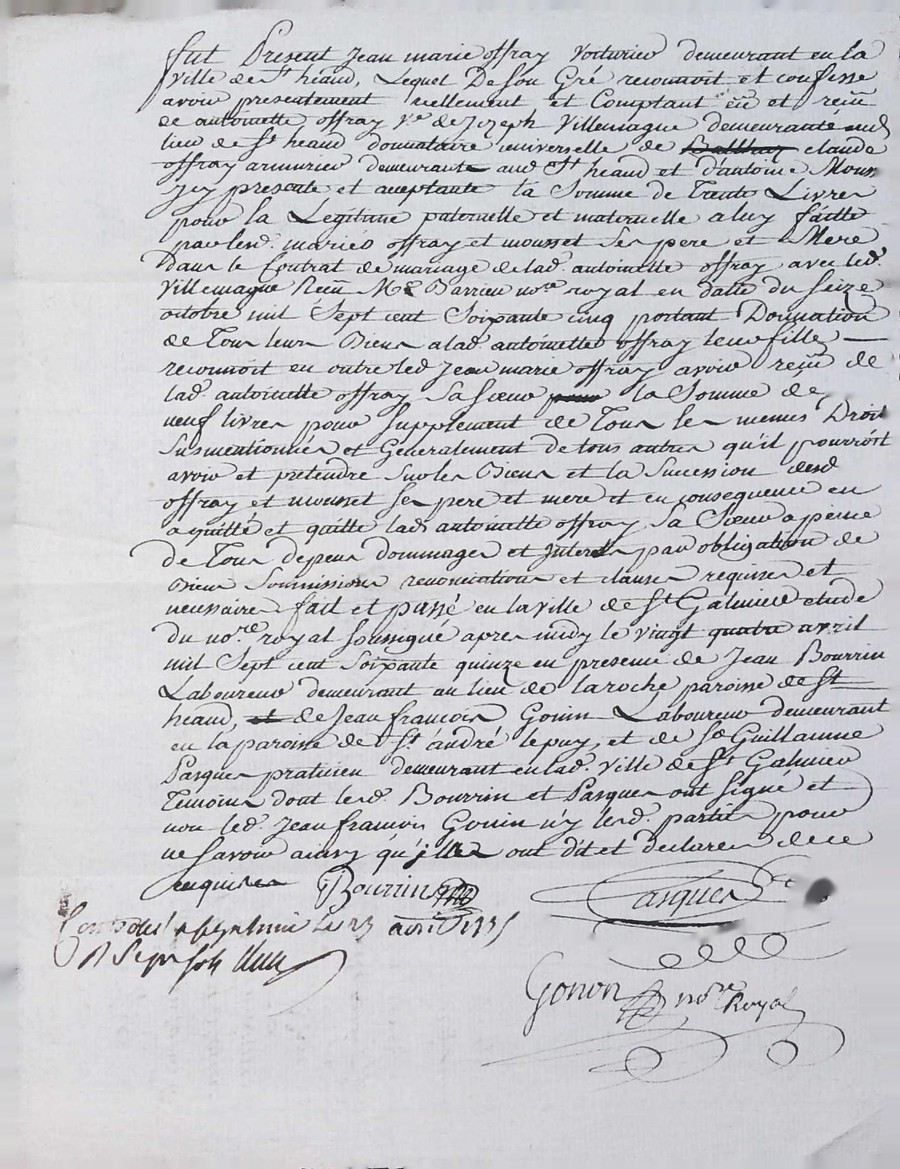 fut Present Jean marie offray Voiturier demeurant en la
Ville de St heand, Lequel De son Gré reconnoit et confesse
avoir presentement reellement et Comptant eü et reçû
de antoinette offray Ve de Jozeph Villemagne demeurante aud
lieu de St heand donnataire universelle de claude
offray armurier demeurante aud St heand et d'antoine Mous
icy presente et aceptante la Somme de Trente Livres
pour la Legitime paternelle et maternelle a luy faitte
par lesd. mariés offray et mousset Ses pere et Mere
Dans le Contrat de mariage de lad. antoinette offray avec led.
Villemagne Reçû Me Barrieu nore royal en datte du Seize
octobre mil Sept cent Soixante cinq portant Donnation
de Tous leurs Biens a lad. antoinette offray leur fille
reconnoit en outre led. Jean marie offray avoir reçû de
lad. antoinette offray Sa sœur la Somme de
neuf livres pour Supplement de Tous les memes Droit
Susmentionnés et Generalement de tous autres qu'il pourroit
avoir et pretendre Sur les Biens et la Sucession desd
offray et mousset Ses pere et mere et en consequence en
a quitté et quitte lad. antoinette offray Sa Sœur a peine
de Tous depens dommages et Interets par obligation de
Biens Soumissions renonciations et clauses requises et
necessaires fait et passé en la ville de St Galmier etude
du nore royal Soussigné apres midy le vingt quatre avril
mil Sept cent Soixante quinze en presence de Jean Bourrin
Laboureur demeurant au lieu de la roche paroisse de St
heand, de Jean françois Gonin Laboureur demeurant
en la paroisse de St andré le puy, et de Sr Guillaume
Pasques praticien demeurant en lad. Ville de St Galmier
Temoins dont lesd. Bourrin et Pasques ont signé et
non led. Jean françois Gonin n'y lesd. parties pour
ne Savoir ainsy qu'illes ont dit et declarer de ce
enquises Bourrin Pasques
avril 1775
Gonon nore Royal